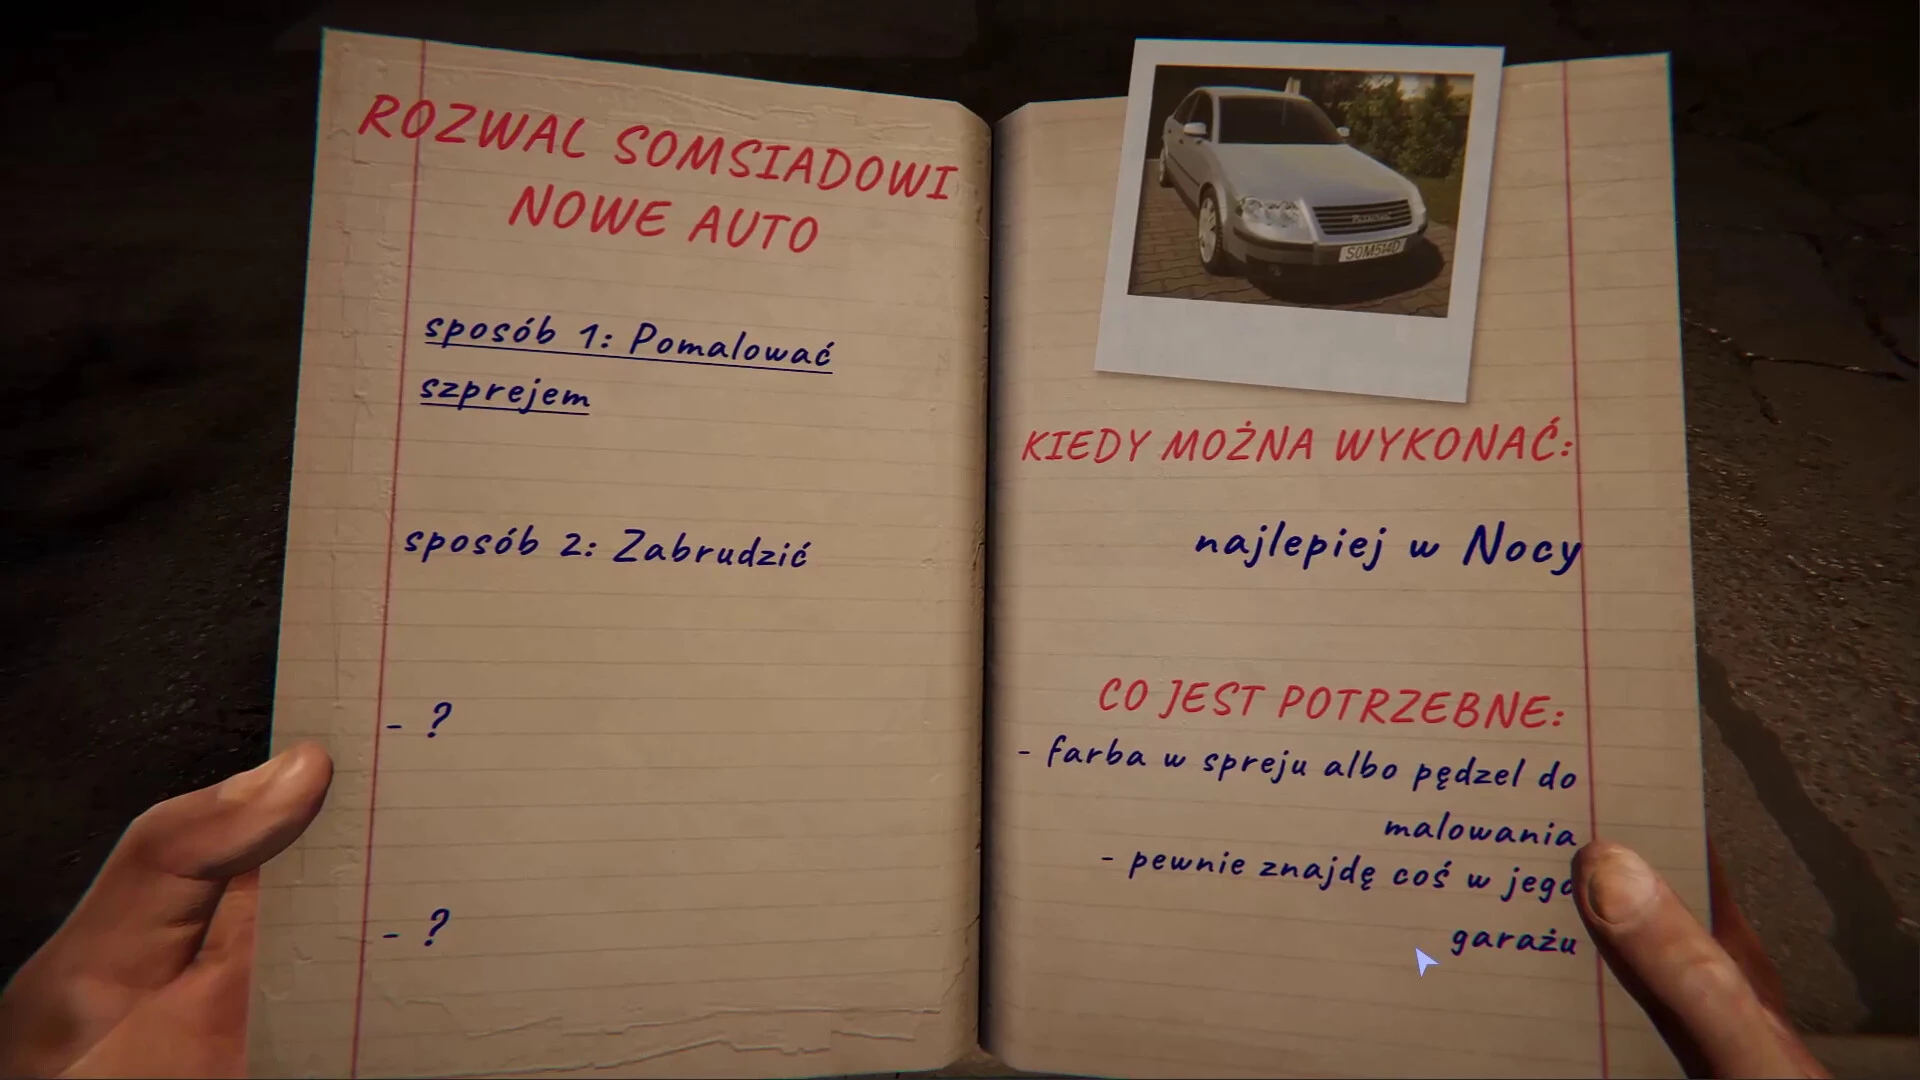 ROZWAL SOMSIADOWI
NOWE AUTO
sposób 1: Pomalować
szprejem
sposób 2: Zabrudzić
- ?
- ?
SOMS14D
KIEDY MOŻNA WYKONAĆ:
najlepiej w Nocy
CO JEST POTRZEBNE:
- farba w spreju albo pędzel do
malowania
- pewnie znajdę coś w jego
garażu